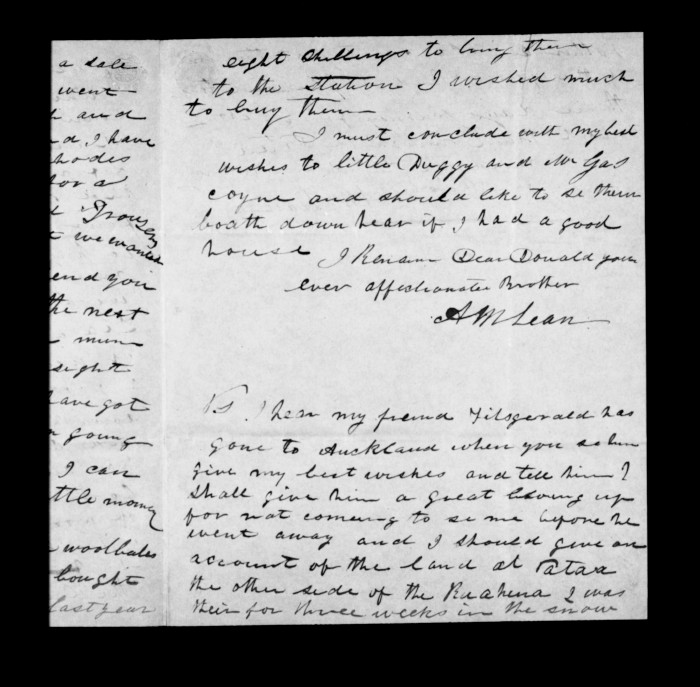 a sale
went
and
nd I have
hodes
for a
Trousers
t we wanted
end you
the next
mun
sight
have got
young
I can
ttle money
woolbales
bought
last year
eight shillings to buy them
to the station I wished much
to buy them
I must conclude with my best
wishes to little Duggy and Mr Gas
coyne and should like to se them
boath down hear if I had a good
house I Remain Dear Donald your
ever affectionatee Brother
A McLean
PS I hear my freind Fitsgerald has
gone to Auckland when you se him
give my best wishes and tell him I
shall give him a great blowing up
for not comeing to se me before he
went away and I should give an
account of the land at Pataa
the other side of the Ruahena I was
their for three weeks in the snow